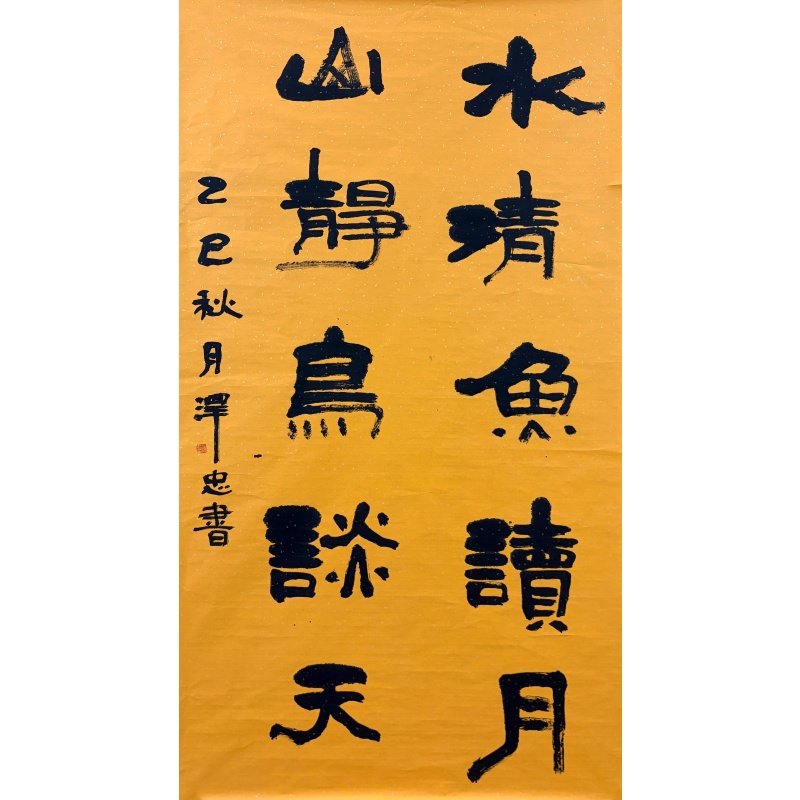 水清魚讀月
山靜鳥談天
乙巳秋月澤忠書